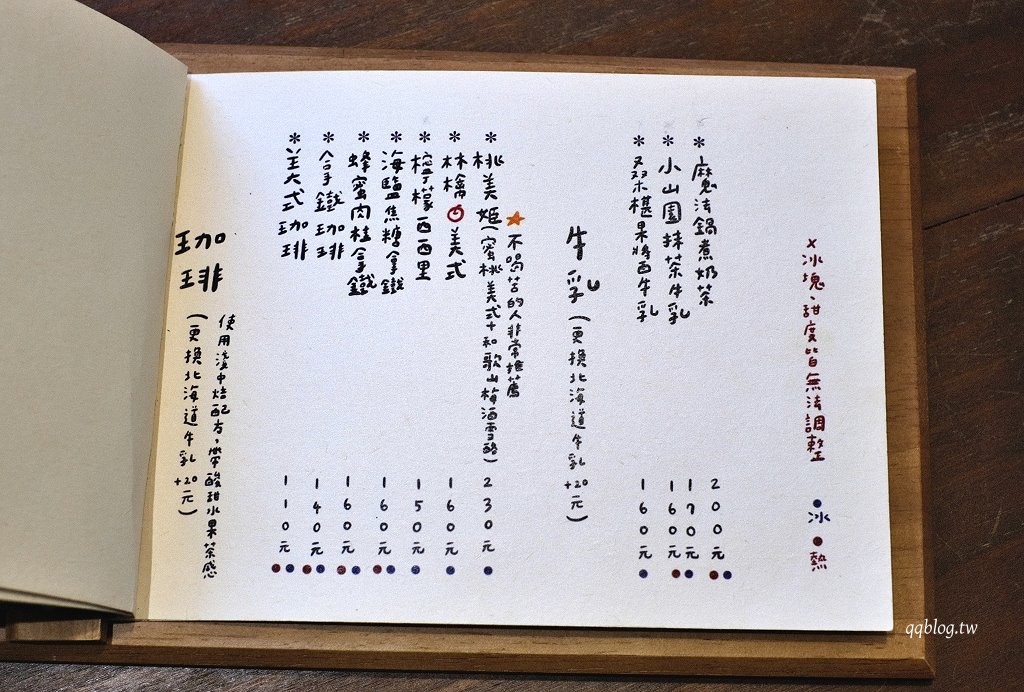 珈琲(更換北海道牛乳+20元)
使用淺中焙配方,帶酸甜水果茶感
*美式珈琲 110元
*拿鐵珈琲 140元
*蜂蜜肉桂拿鐵 160元
*海鹽焦糖拿鐵 160元
*檸檬西西里 150元
*林檎美式 160元
*桃美姬(蜜桃美式+和歌山梅酒雪酪) 230元
★不喝苦的人非常推薦
牛乳(更換北海道牛乳+20元)
*桑椹果醬牛乳 160元
*小山園抹茶牛乳 160元 170元
*魔法鍋煮奶茶 200元
×冰塊、甜度皆無法調整 ●冰 ●熱
qqblog.tw